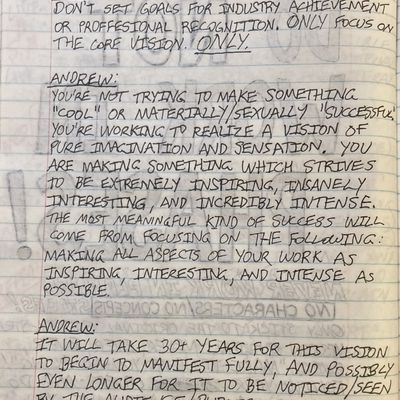 DON'T SET GOALS FOR INDUSTRY ACHIEVEMENT
OR PROFFESIONAL RECOGNITION. ONLY FOCUS ON
THE CORE VISION. ONLY.
ANDREW:
YOU'RE NOT TRYING TO MAKE SOMETHING
"COOL" OR MATERIALLY/SEXUALLY "SUCCESSFUL"
YOU'RE WORKING TO REALIZE A VISION OF
PURE IMAGINATION AND SENSATION. YOU
ARE MAKING SOMETHING WHICH STRIVES
TO BE EXTREMELY INSPIRING, INSANELY
INTERESTING, AND INCREDIBLY INTENSE.
THE MOST MEANINGFUL KIND OF SUCCESS WILL
COME FROM FOCUSING ON THE FOLLOWING:
MAKING ALL ASPECTS OF YOUR WORK AS
INSPIRING, INTERESTING, AND INTENSE AS
POSSIBLE.
ANDREW:
IT WILL TAKE 30+ YEARS FOR THIS VISION
TO BEGIN TO MANIFEST FULLY, AND POSSIBLY
EVEN LONGER FOR IT TO BE NOTICED/SEEN
BY THE